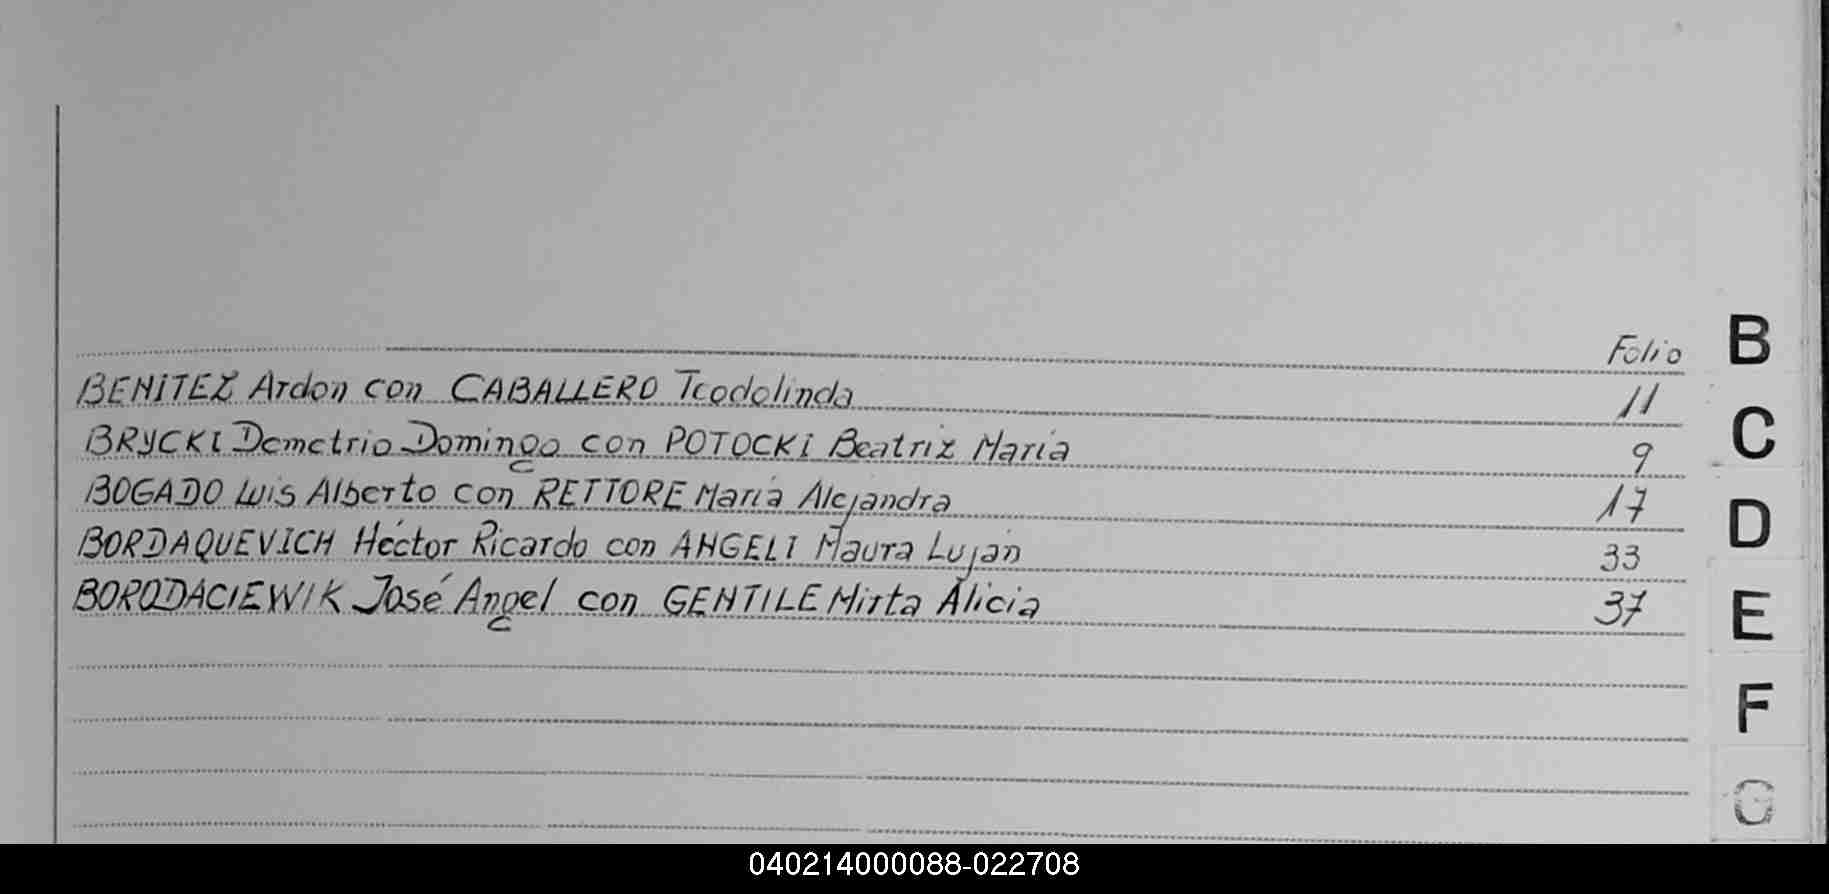 Folio
BENITEZ Ardon con CABALLERO Teodolinda 11
BRYCKI Demetrio Domingo con POTOCKI Beatriz María 9
BOGADO Luis Alberto con RETTORE María Alejandra 17
BORDAQUEVICH Héctor Ricardo con ANGELI Maura Luján 33
BORODACIEWIK José Angel con GENTILE Mirta Alicia 37
B
C
D
E
F
G
040214000088-022708